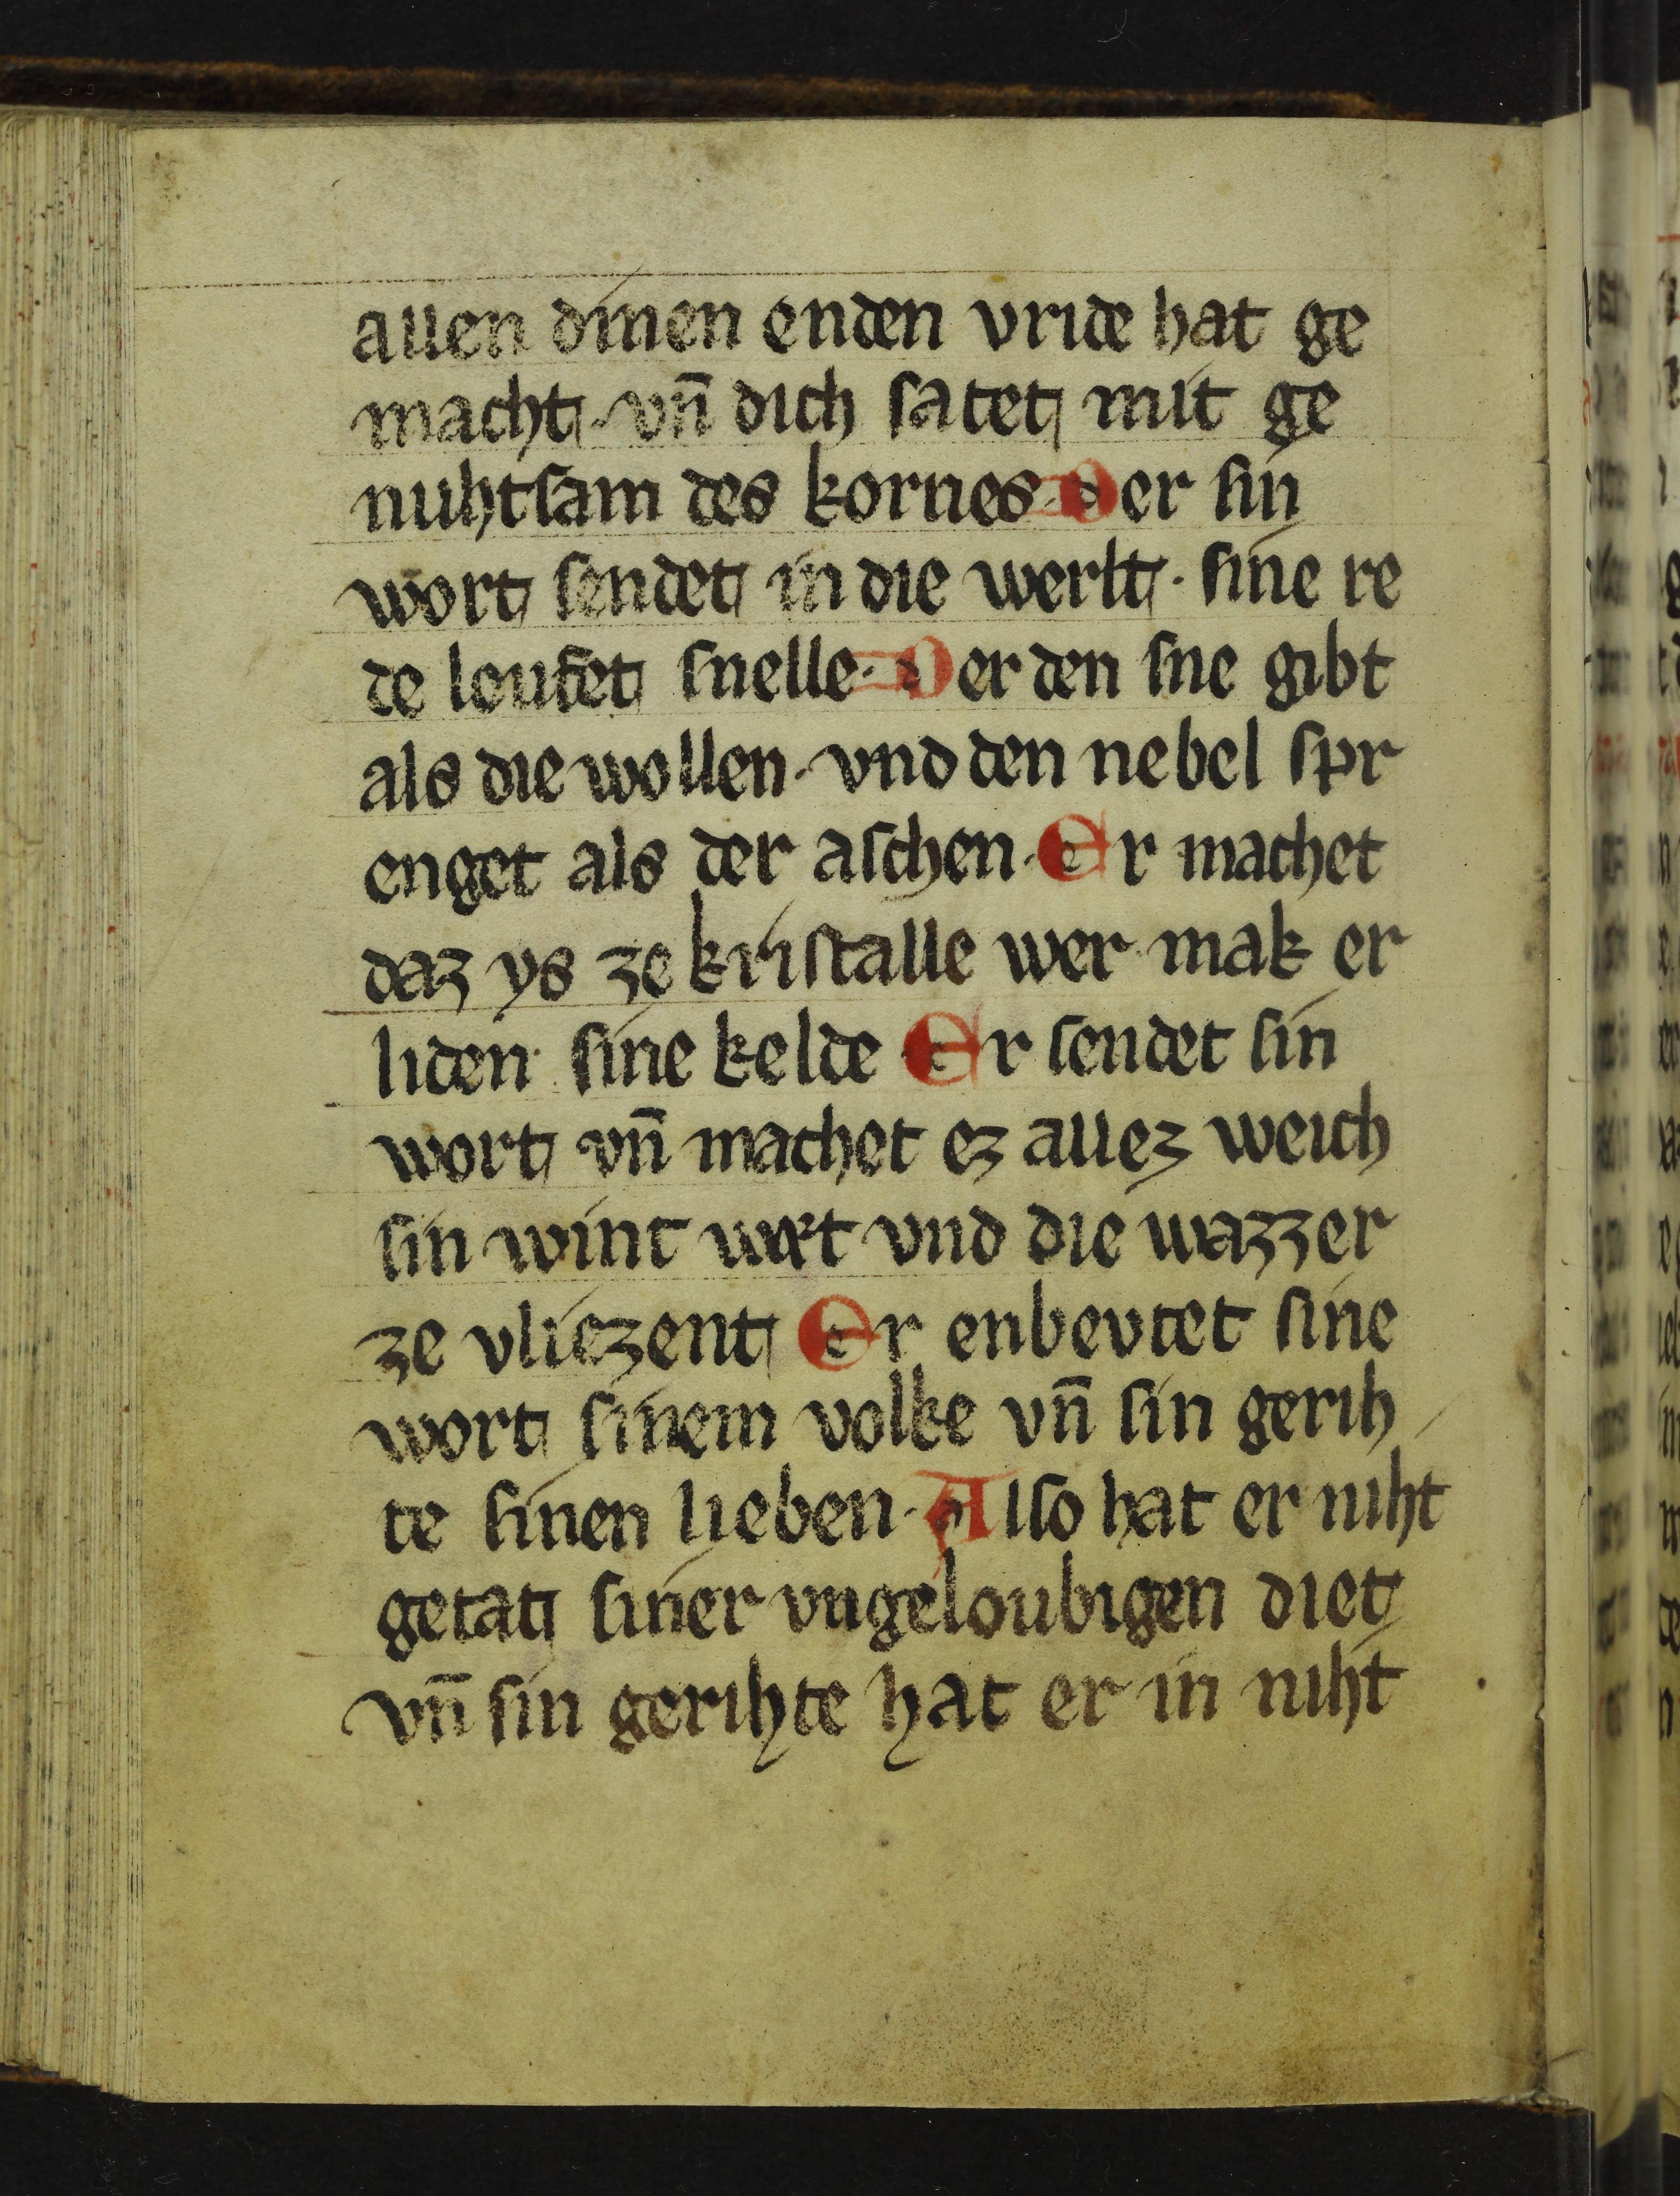 allen dinen enden vride hat ge
macht · vn̄ dich satet mit ge
nuhtsam des kornes · Der sin
wort sendet in die werlt · sine re
de loufet snelle · Der den sne gibt
als die wollen · vnd den nebel spr
enget als der aschen · Er machet
daz ys ze kristalle wer mak er
liden sine kelde Er sendet sin
wort vn̄ machet ez allez weich
sin wint wæt vnd die wazzer
ze vliezent Er enbevtet sine
wort sinem volke vn̄ sin gerih
te sinen lieben · Also hat er niht
getat siner vngeloubigen diet
vn̄ sin gerihte hat er in niht